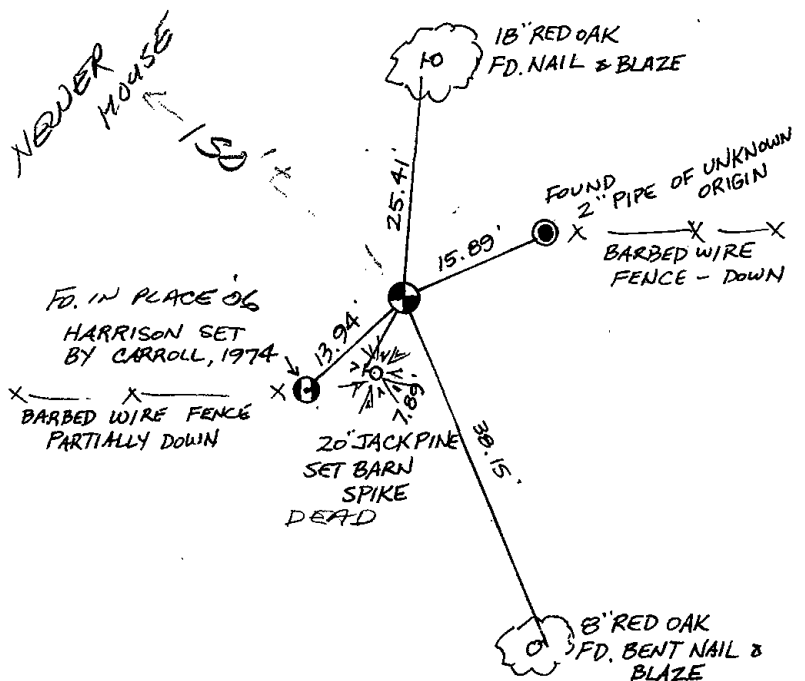 18" RED OAK
FD. NAIL & BLAZE
NEWER
HOUSE
150'±
25.41'
FOUND
2" PIPE OF UNKNOWN
ORIGIN
15.89'
X X X
BARBED WIRE
FENCE - DOWN
FD. IN PLACE '06
HARRISON SET
BY CARROLL, 1974
13.94'
X X X
BARBED WIRE FENCE
PARTIALLY DOWN
7.89'
20" JACKPINE
SET BARN
SPIKE
DEAD
38.15'
8" RED OAK
FD. BENT NAIL &
BLAZE